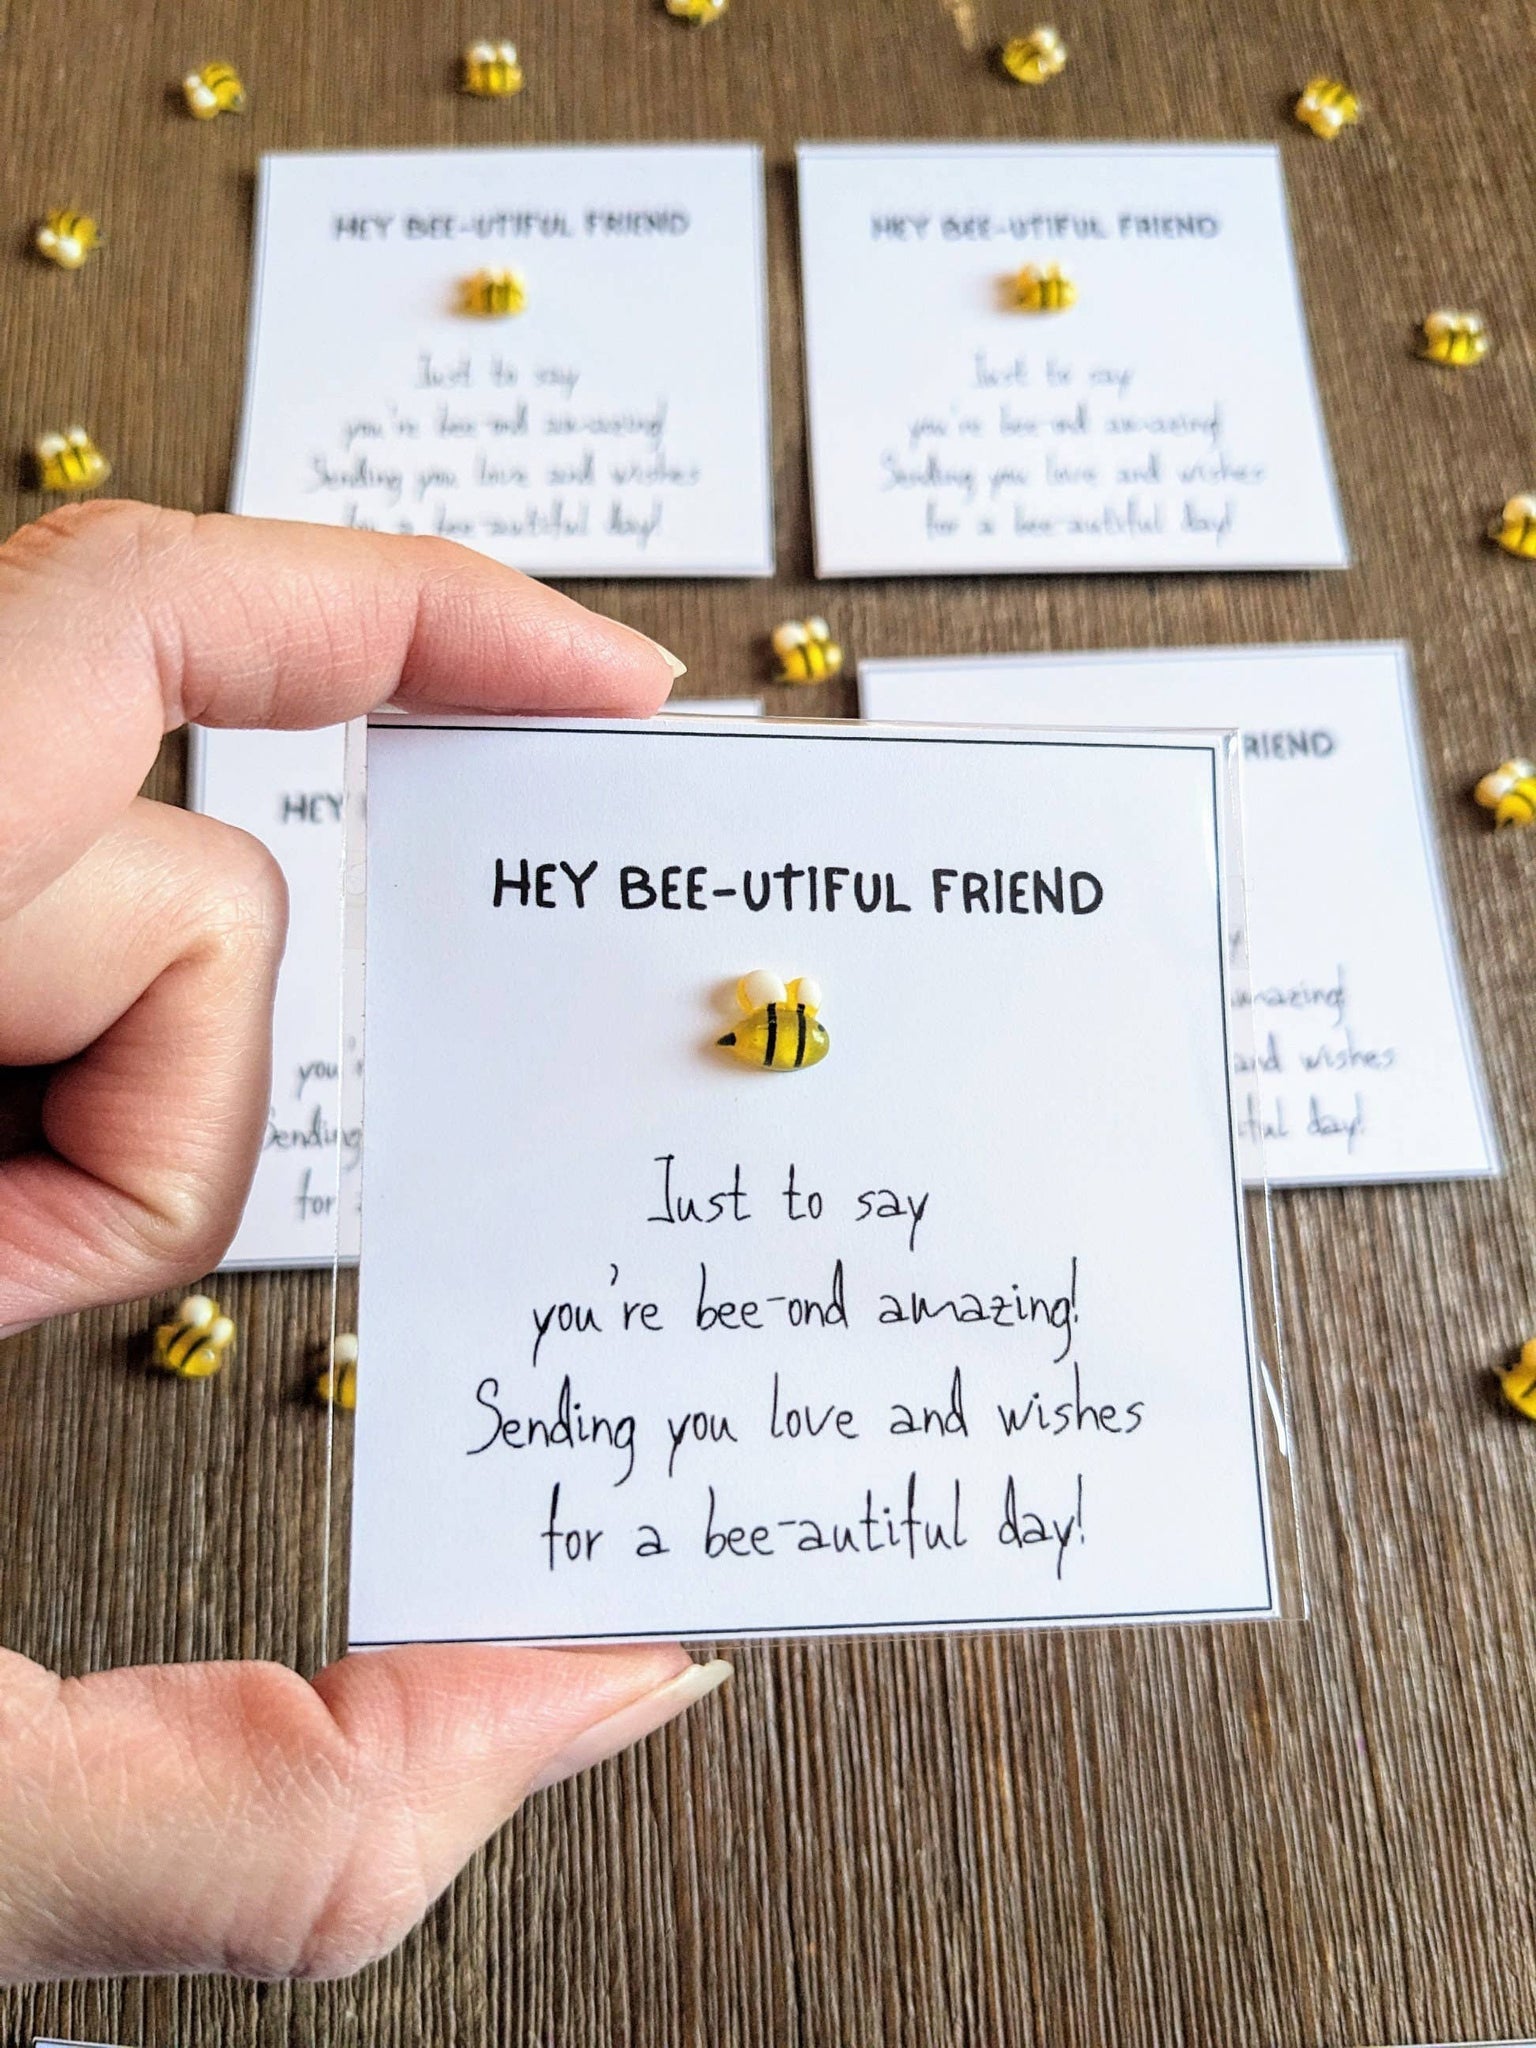 HEY BEE-UTIFUL FRIEND
Just to say
you're bee-ond amazing!
Sending you love and wishes
for a bee-autiful day!
HEY BEE-UTIFUL FRIEND
Just to say
you're bee-ond amazing!
Sending you love and wishes
for a bee-autiful day!
HEY
you'r
Sending
for
RIEND
amazing!
and wishes
iful day!
HEY BEE-UTIFUL FRIEND
Just to say
you're bee-ond amazing!
Sending you love and wishes
for a bee-autiful day!